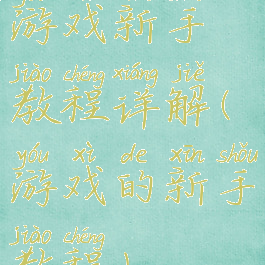 游戏新手
jiào chéng xiáng jiě
教程详解(
yóu xì de xīn shǒu
游戏的新手
jiào chéng
教程)